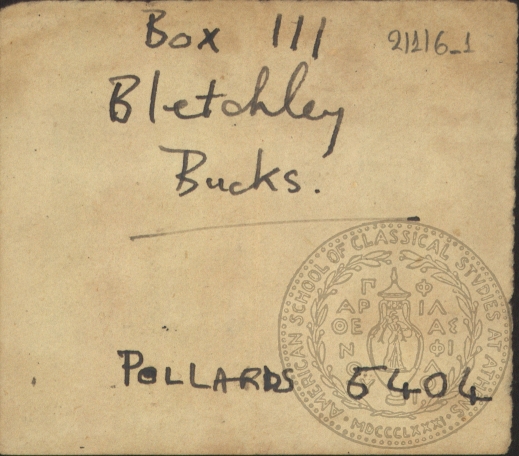 Box 111
21116_1
Bletchley
Bucks.
AMERICAN SCHOOL OF CLASSICAL STVDIES AT ATHENS
ΠΑΡΘΕΝΟΥ
ΦΙΛΑΣ ΦΙΛΟΙ
MDCCCLXXXI
POLLARDS 5404